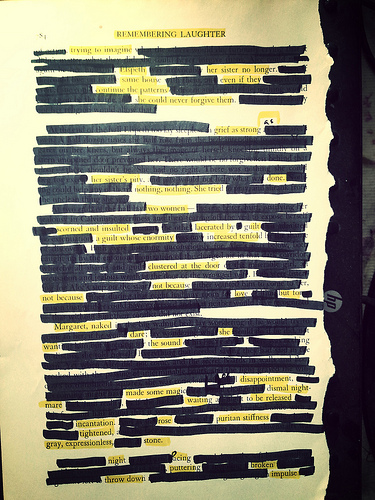 REMEMBERING LAUGHTER
trying to imagine
Elspeth her sister no longer.
same house even if they
continue the patterns
she could never forgive them.
as
grief as strong
her sister's pity, done.
nothing, nothing. She tried
two women—
scorned and insulted lacerated by guilt
a guilt whose enormity increased tenfold
clustered at the door
not because
not because love but
Margaret, naked she
dare;
want the sound
disappointment,
made some magic dismal night-
mare waiting to be released
incantation rose puritan stiffness
tightened,
gray, expressionless, stone.
night
puttering broken
throw down impulse